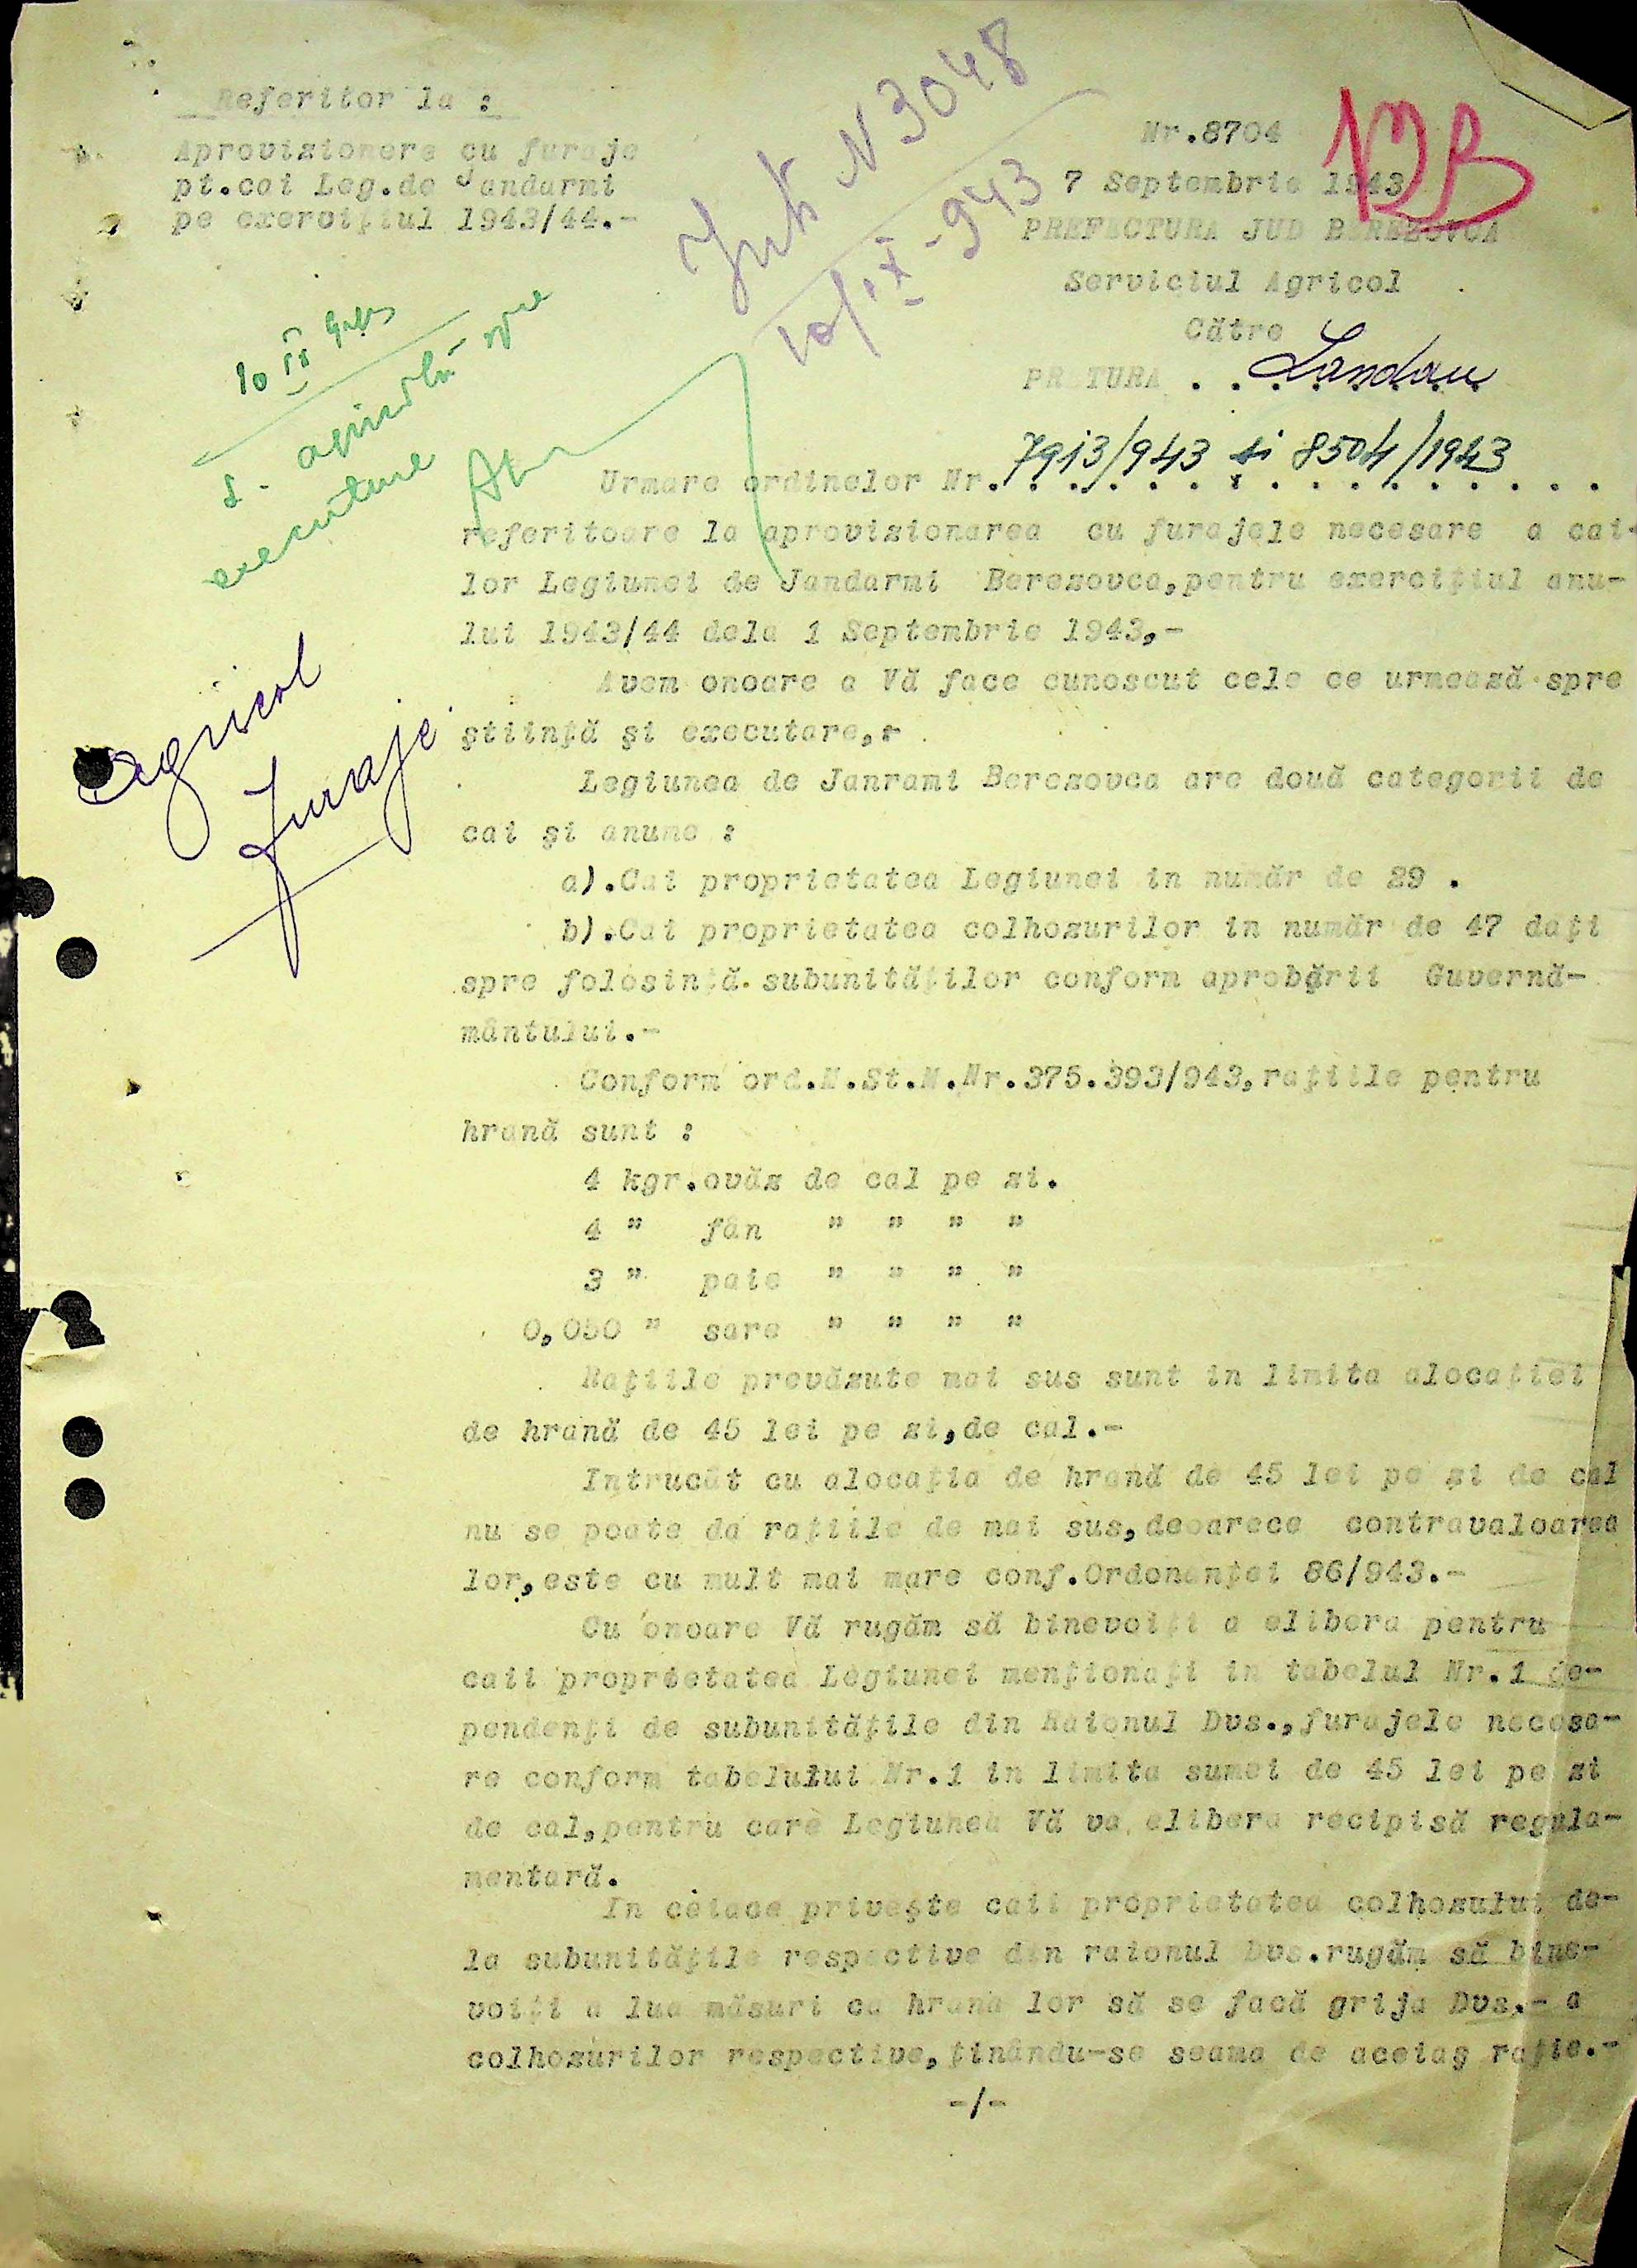 Referitor la :
Aprovizionere cu furaje
pt.cai Leg.de Jandarmi
pe exerciţiul 1943/44.-
N 3048
10/IX-943
Nr.8704
7 Septembrie 1943
PREFECTURA JUD BEREZOVCA
Serviciul Agricol
Către
PRETURA . . Landau
10 IX
S. agricolă spre
executare
Agricol
Furaje
Urmare ordinelor Nr. 7913/943 si 8504/1943
referitoare la aprovizionarea cu furajele necesare a cai-
lor Legiunei de Jandarmi Berezovca,pentru exerciţiul anu-
lui 1943/44 dela 1 Septembrie 1943,-
Avem onoare a Vă face cunoscut cele ce urmează spre
ştiinţă şi executare,-
Legiunea de Janrami Berezovca are două categorii de
cai şi anume :
a).Cai proprietatea Legiunei in număr de 29 .
b).Cai proprietatea colhozurilor in număr de 47 daţi
spre folosinţă subunităţilor conform aprobării Guvernă-
mântului.-
Conform ord.M.St.M.Nr.375.393/943,raţiile pentru
hrană sunt :
4 kgr.ovăz de cal pe zi.
4 " fân " " " "
3 " paie " " " "
0,050 " sare " " " "
Raţiile prevăzute mai sus sunt in limita alocaţiei
de hrană de 45 lei pe zi,de cal.-
Intrucât cu alocaţia de hrană de 45 lei pe zi de cal
nu se poate da raţiile de mai sus,deoarece contravaloarea
lor,este cu mult mai mare conf.Ordonanţei 86/943.-
Cu onoare Vă rugăm să binevoiţi a elibera pentru
caii proprietatea Legiunei menţionaţi in tabelul Nr.1 de-
pendenţi de subunităţile din Raionul Dvs.,furajele necesa-
re conform tabelului Nr.1 in limita sumei de 45 lei pe zi
de cal,pentru care Legiunea Vă va elibera recipisă regula-
mentară.
In ceiace priveşte caii proprietatea colhozului de-
la subunităţile respective din raionul Dvs.rugăm să bine-
voiţi a lua măsuri ca hrana lor să se facă grija Dvs.- a
colhozurilor respective,ţinându-se seama de aceiaş raţie.-
-/-